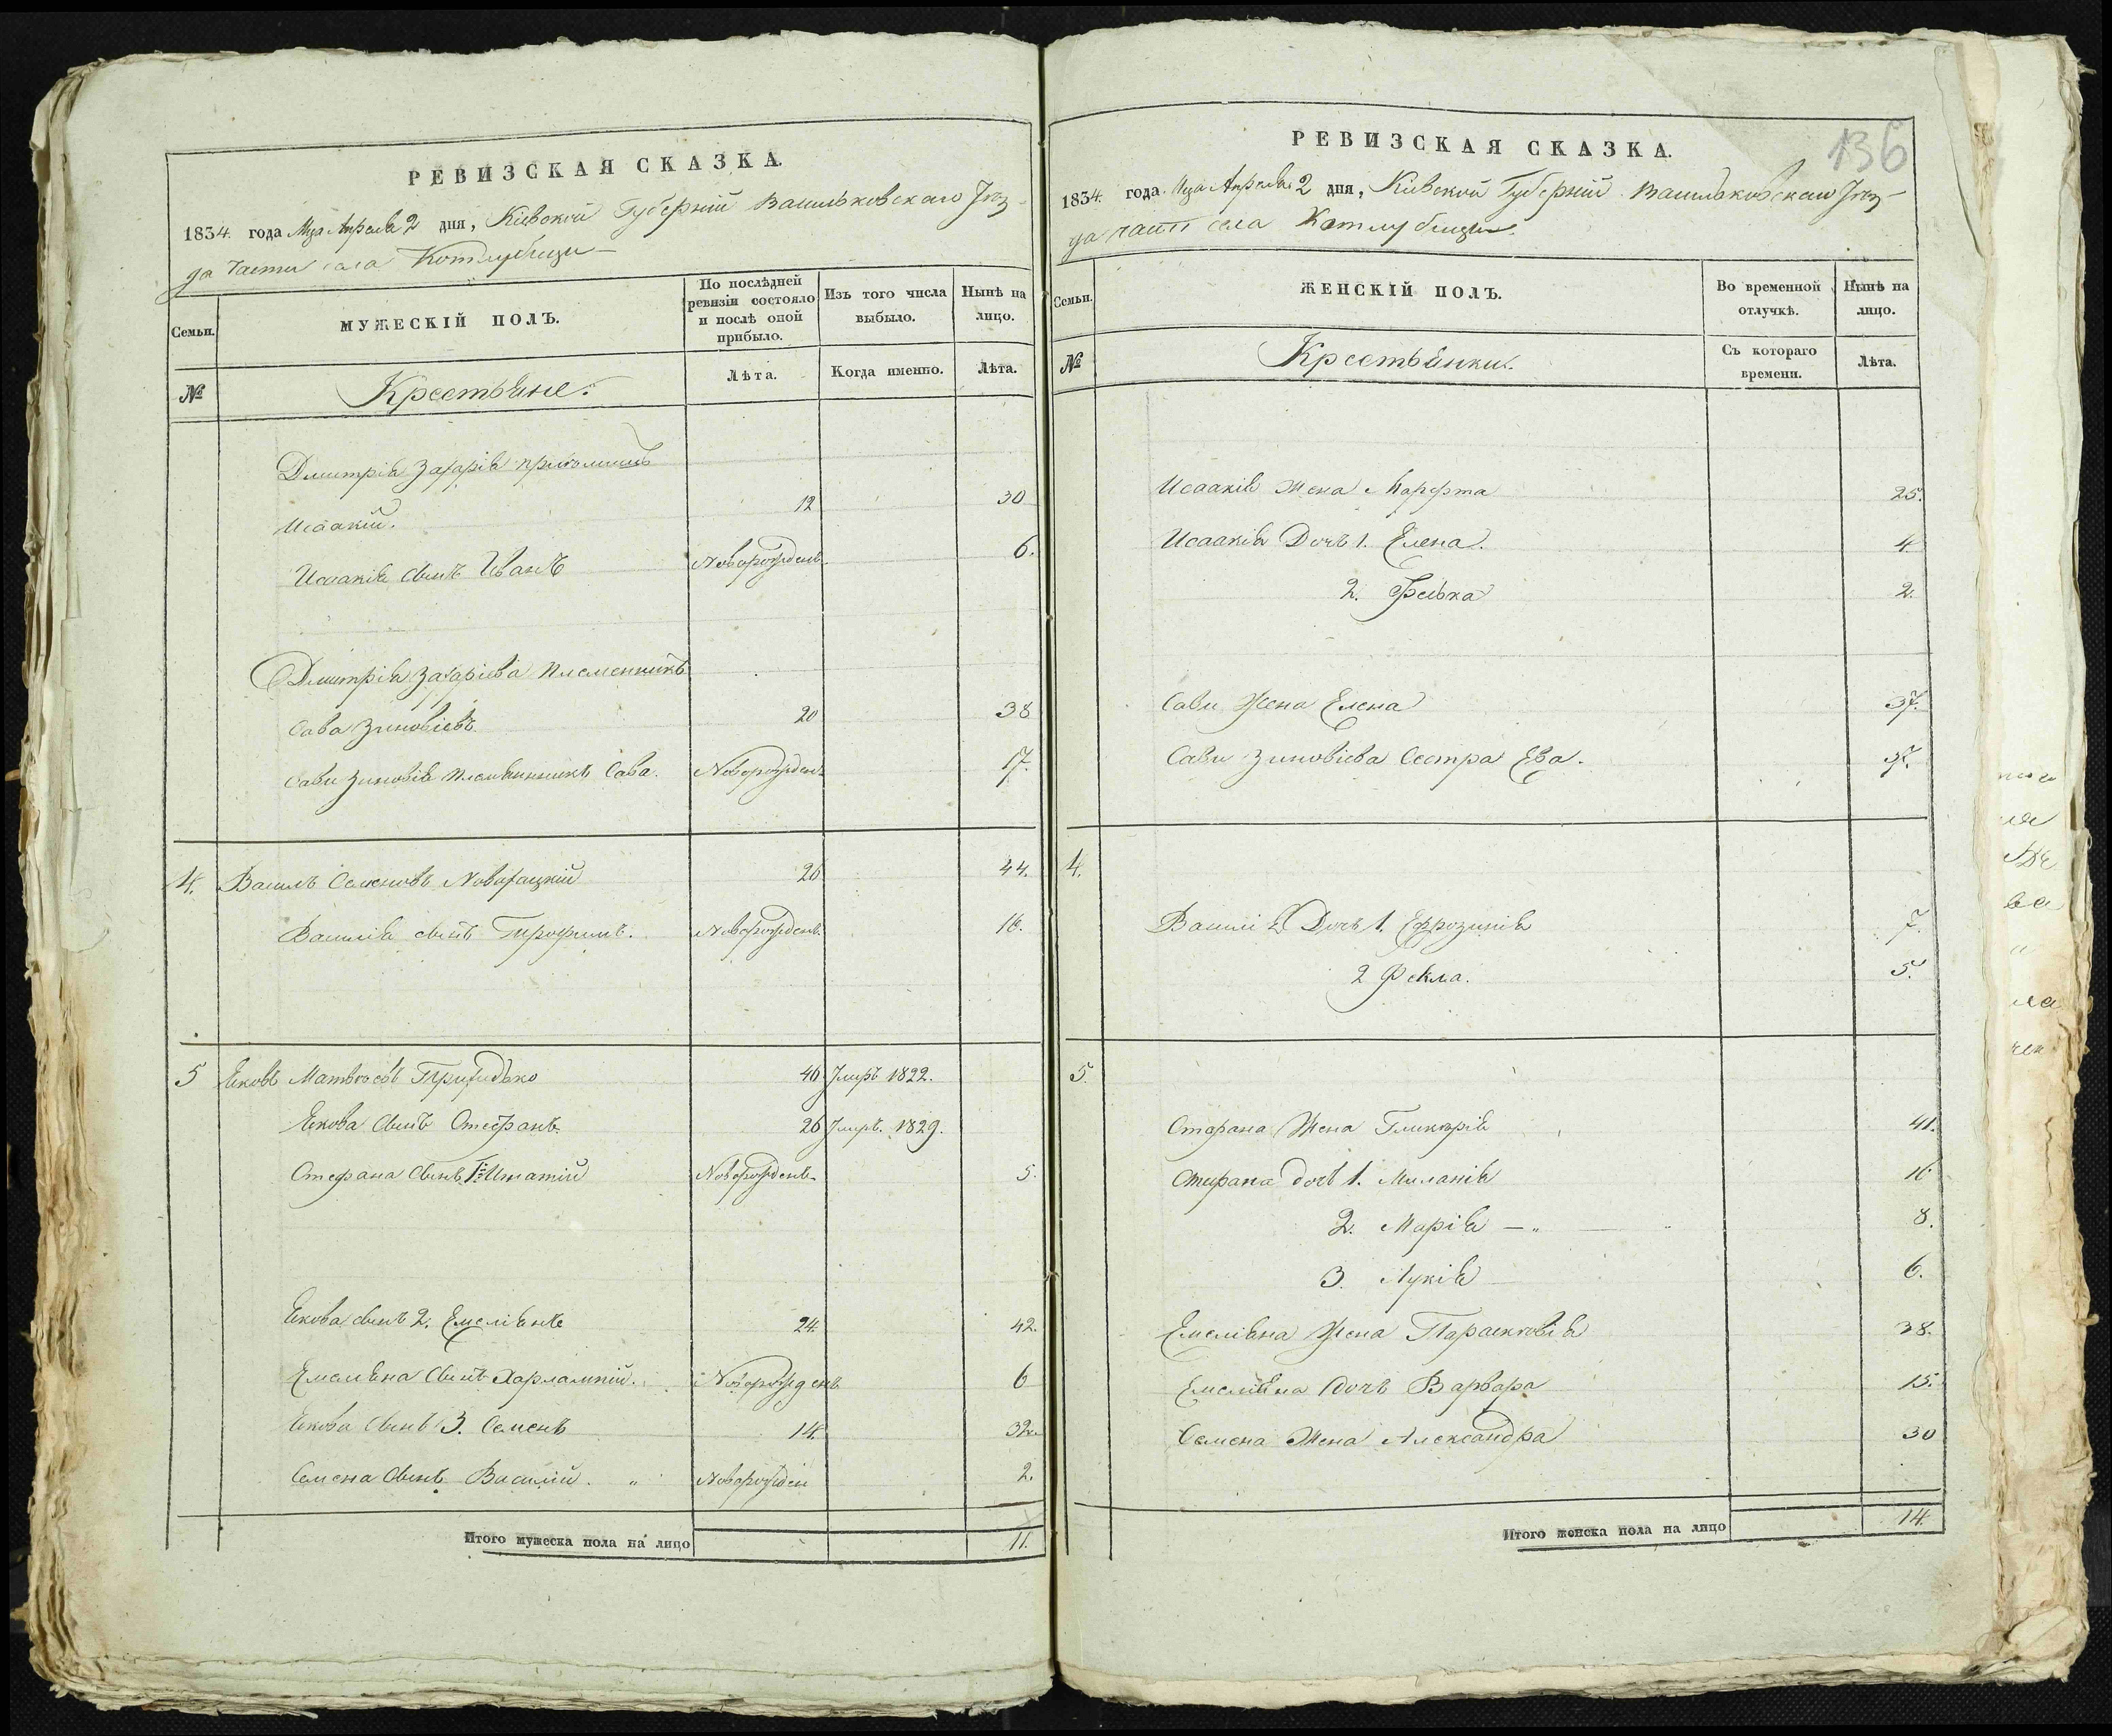 РЕВИЗСКАЯ СКАЗКА.
1834. года Мца Апреля 2 дня, Кіевской Губерніи Васильковскаго Уѣз-
да Части села Котлубицы
Семьи.
МУЖЕСКІЙ ПОЛЪ.
По послѣдней ревизіи состояло и послѣ оной прибыло.
Изъ того числа выбыло.
Нынѣ на лицо.
№
Крестьяне.
Лѣта.
Когда именно.
Лѣта.
Дмитрія Захарія
Исаакій. 12 30
Исаакія сынъ Иванъ Новорожденъ. 6.
Дмитрія Захаріева Племенникъ
Сава Зиновіевъ. 20 38
Савы Зиновія племянникъ Сава. Новорожден 17.
4. Василь Семеновъ 26 44.
Василія сынъ Трофимъ. Новорожденъ. 16.
5 Яковъ Матвѣевъ 46 Умръ 1822.
Якова сынъ Стефанъ. 26 Умръ. 1829.
Стефана сынъ 1й Игнатій Новорожденъ 5.
Якова сынъ 2. Емеліянъ 24. 42.
Емеляна сынъ Харлампій. Новорожденъ 6
Якова сынъ 3. Семенъ 14. 32.
Семена сынъ Василій. " Новорожден 2.
Итого мужеска пола на лицо 11.
136
РЕВИЗСКАЯ СКАЗКА.
1834. года Мца Апреля 2 дня, Кіевской Губерніи Васильковскаго Уѣз-
да части села Котлубицы.
Семьи.
ЖЕНСКІЙ ПОЛЪ.
Во временной отлучкѣ.
Нынѣ на лицо.
№
Крестьянки.
Съ котораго времени.
Лѣта.
Исаакія жена Марфта 25.
Исаакія Дочь 1. Елена. 4.
2. Феська 2.
Савы Жена Елена 37.
Савы Зиновіева Сестра Ева.
4.
Василія Дочь 1. Ефрозинія 7.
2 Фекла. 5.
5.
Стефана Жена Гликерія 41.
Стефана дочь 1. Миланія 16
2. Марія — " 8.
3. Лукія 6.
Емеліяна Жена Парасковія 38.
Емеліяна дочь Варвара 15.
Семена Жена Александра 30
Итого женска пола на лицо 14.